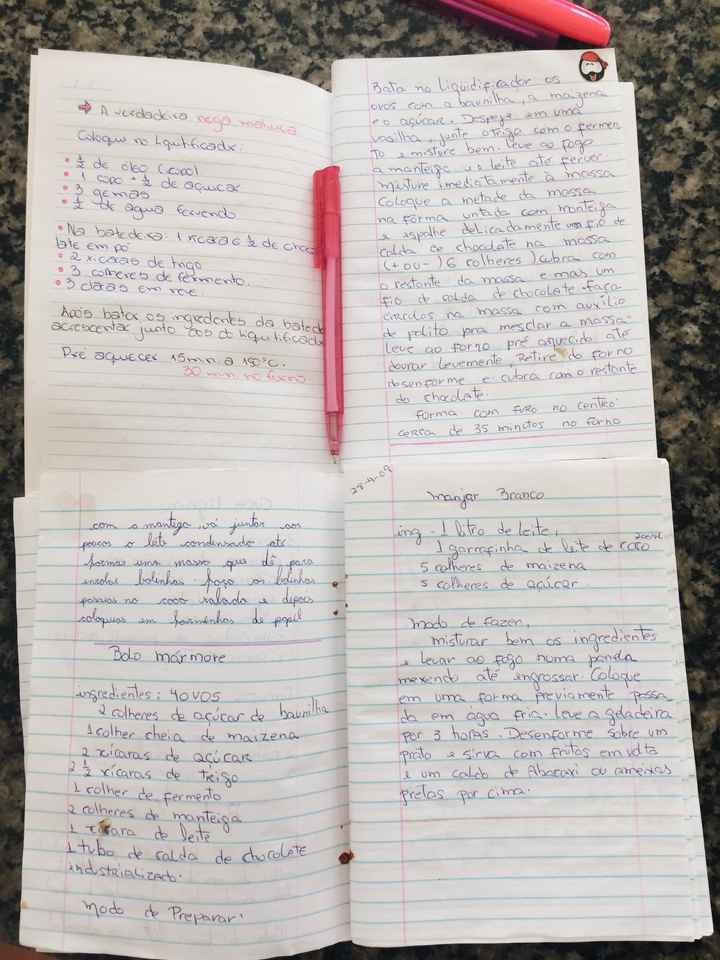 → A verdadeira nega maluca
Coloque no Liquificador:
• 1/2 de óleo (copo)
• 1 copo + 1/2 de açucar
• 3 gemas
• 1/2 de agua fervendo
• Na batedeira: 1 xicara e 1/2 de choco
late em pó
• 2 xicaras de trigo
• 3 colheres de fermento.
• 3 claras em neve.
Após bater os ingredentes da bated
acrescentar junto aos do liquificad
Pré aquecer 15 min. a 180°C.
30 min no forno.
Bata no Liquidificador os
ovos com a baunilha, a maizena
e o açúcar. Despeje em uma
vasilha, junte o trigo com o fermen
to e misture bem. Leve ao fogo
a manteiga e o leite até ferver.
misture imediatamente à massa
Coloque a metade da massa
na fôrma untada com manteiga
e espalhe delicadamente um fio de
calda de chocolate na massa
(+ ou -) 6 colheres) cubra com
o restante da massa e mais um
fio de calda de chocolate faça
circulos na massa com auxílio
de palito pra mesclar a massa.
Leve ao forno pré aquecido até
dourar Levemente, Retire do forno
desenforme e cubra com o restante
do chocolate.
forma com furo no centro.
cerca de 35 minutos no forno
com a manteiga, vá juntar aos
poucos o leite condensado até
formar uma massa que dê para
enrolar bolinhas faça as bolinhas
passas no coco ralado e depois
coloques em forminhas de papel
Bolo mármore
ingredientes: 4 ovos
2 colheres de açúcar de baunilha
1 colher cheia de maizena
2 xícaras de açúcar
2 1/2 xícaras de trigo
1 colher de fermento
2 colheres de manteiga
1 xícara de leite
1 tubo de calda de chocolate
industrializado.
modo de Preparar.
28-4-09
manjar Branco
ing - 1 litro de leite,
1 garrafinha de leite de coco 200ml
5 colheres de maizena
5 colheres de açúcar
modo de fazer,
misturar bem os ingredientes
e levar ao fogo numa panela
mexendo até engrossar. Coloque
em uma forma previamente passa
da em água fria. leve a geladeira
por 3 horas. Desenforme sobre um
prato e sirva com frutas em volta
e um caldo de Abacaxi ou ameixas
pretas por cima.